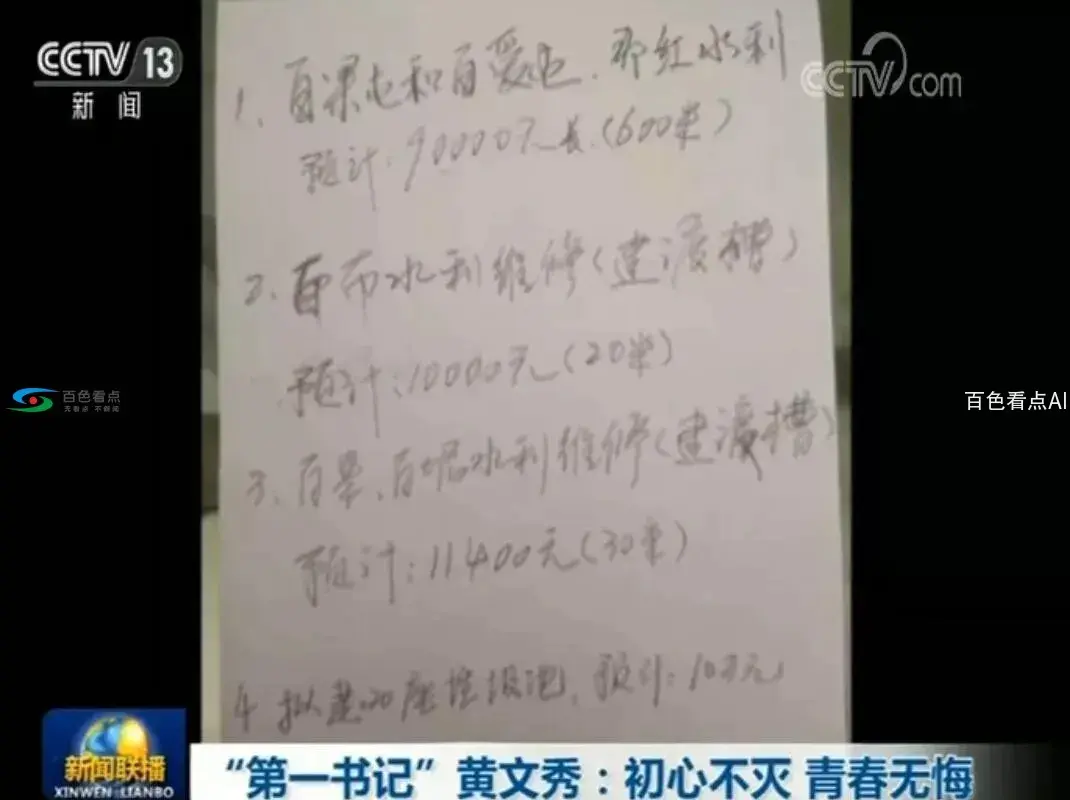 CCTV 13
新闻
CCTV.com
1、百果屯和百爱屯、那红水利
预计:90000元长(600米)
2、百布水利维修(建渡槽)
预计:10000元(20米)
百色看点
百色看点AI
3、百果、百坭水利维修(建渡槽)
预计:11400元(30米)
4 拟建20座
预计:10万元
新闻联播
XINWEN LIANBO
“第一书记”黄文秀:初心不灭 青春无悔